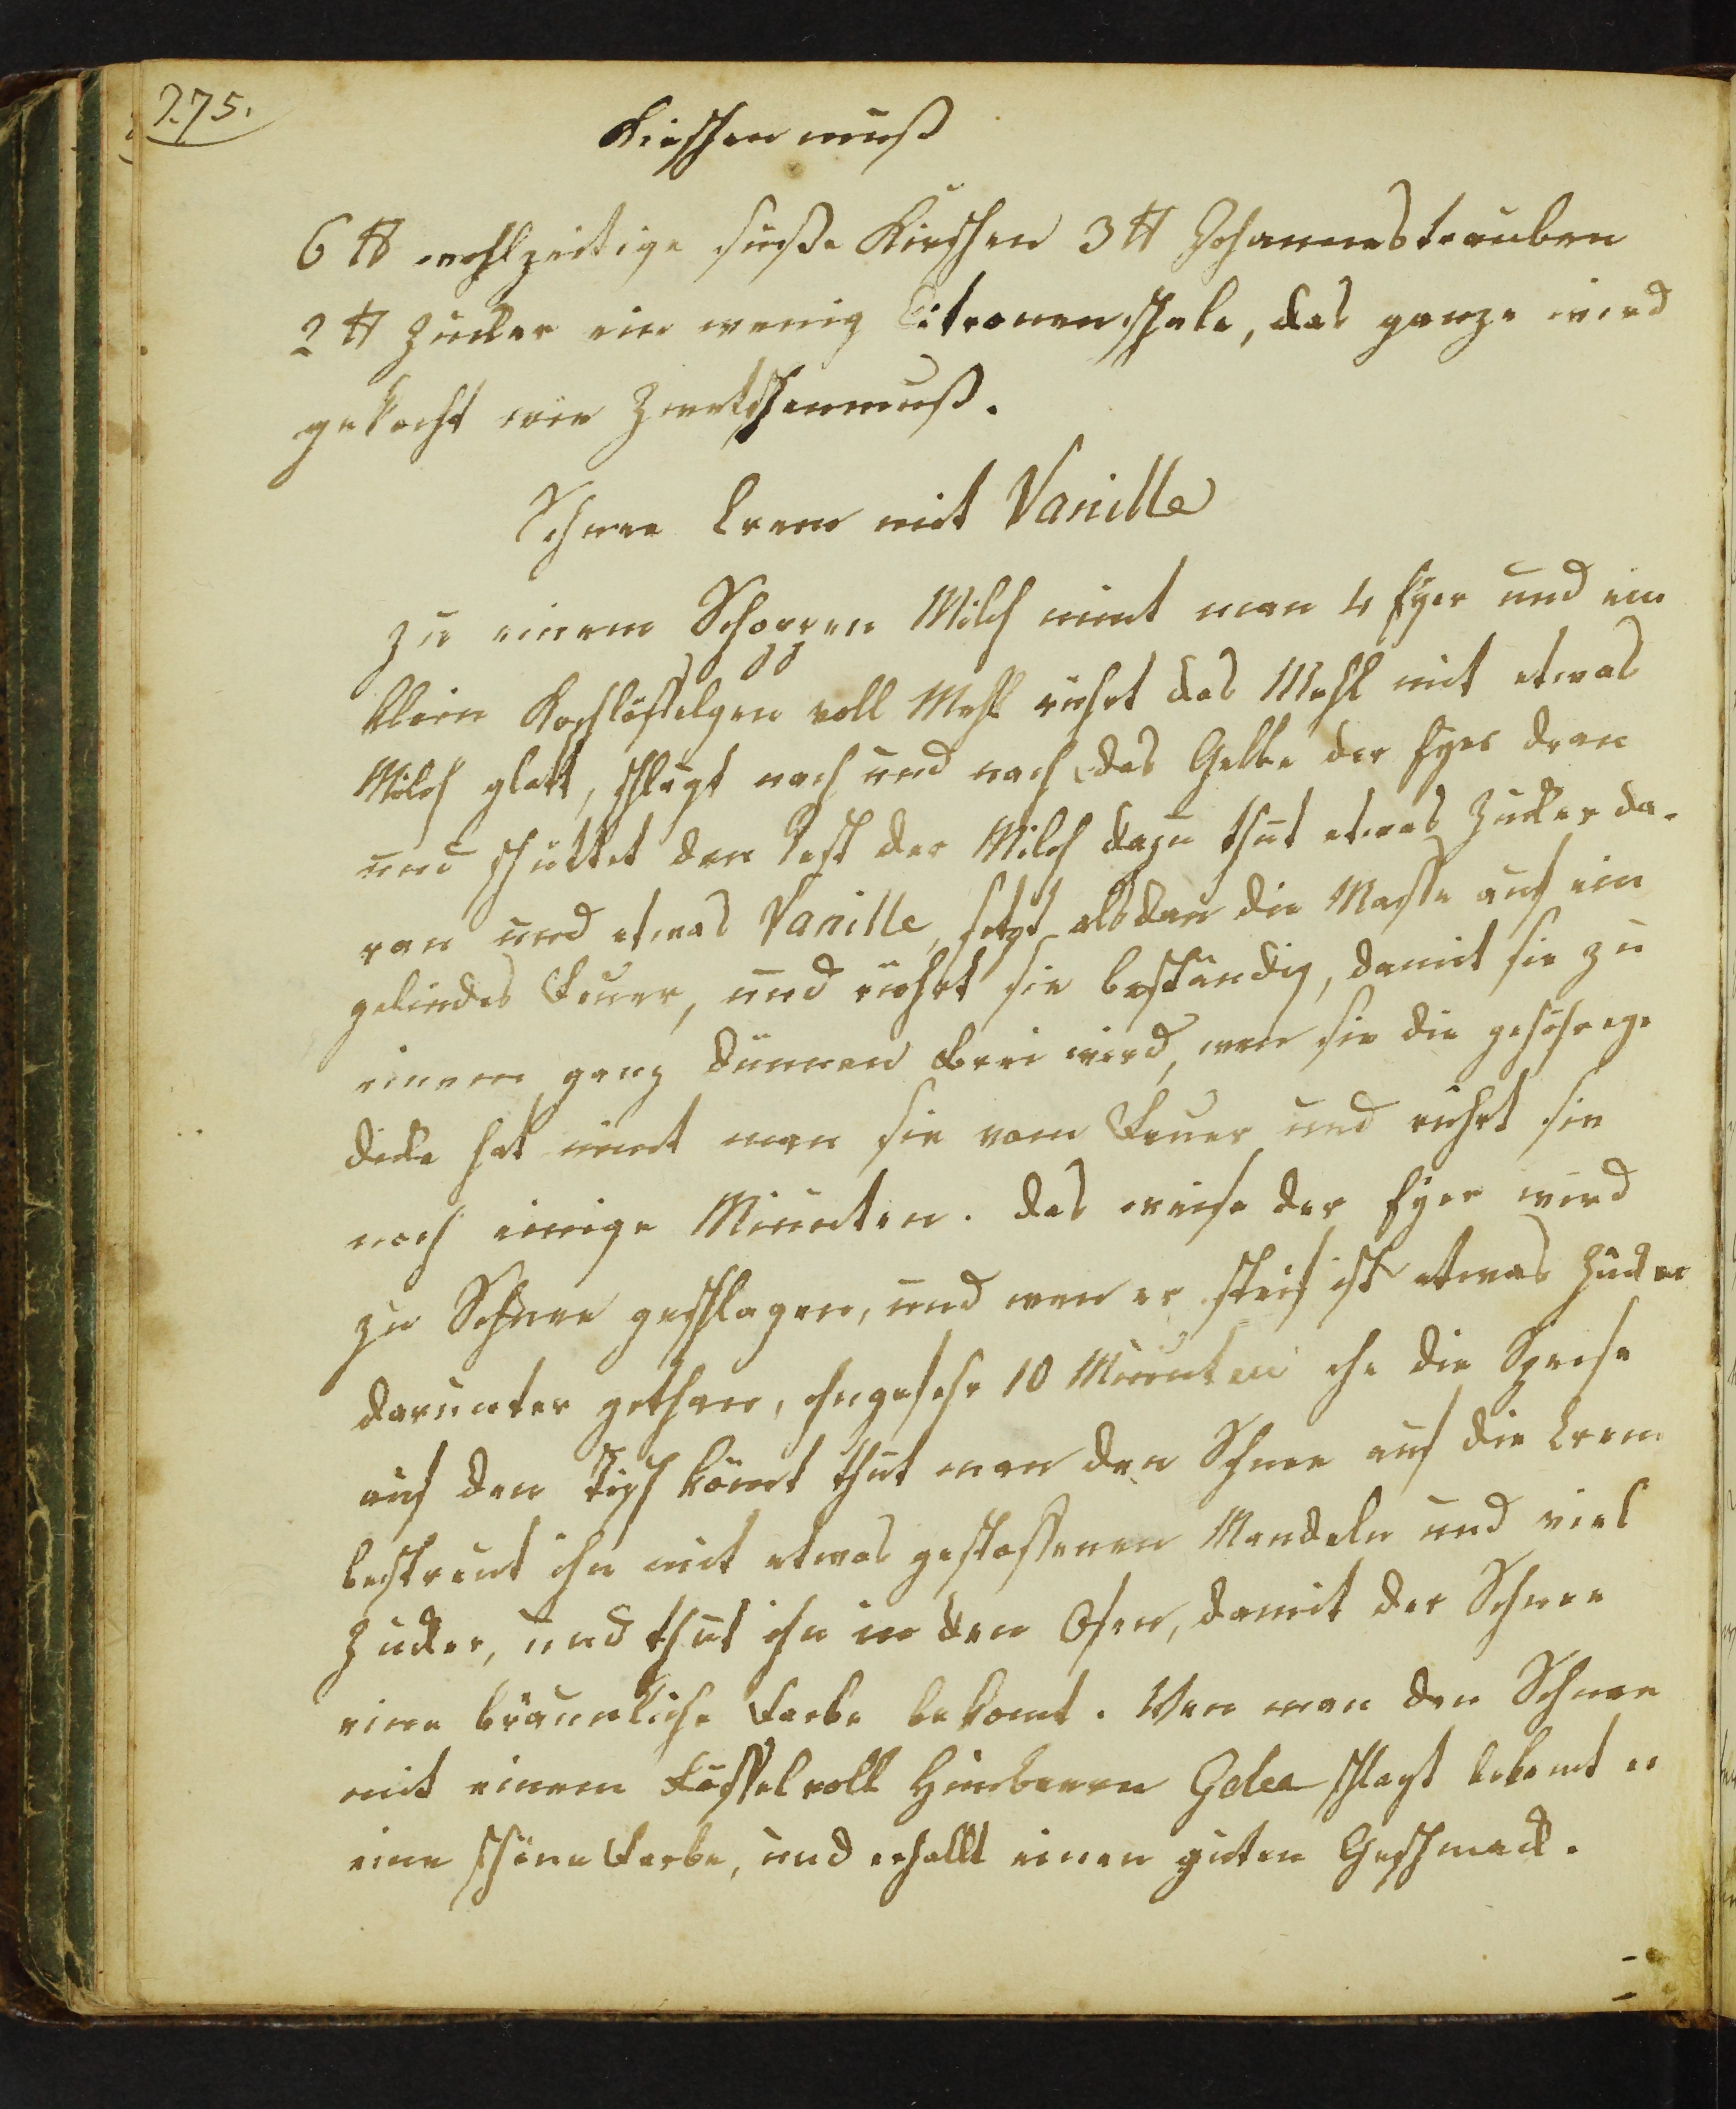 275.
Kirschen muß
6 ℔ wohlzeitige süße Kirschen 3 ℔ Johannestrauben
2 ℔ Zucker ein wenig Citronenschale, das ganze wird
gekocht wie Zwetschenmuß.
Schnee Crem mit Vanille
Zu einem Schoppen Milch nimt man 4 Eyer und ein
klein Kochlöffelgen voll Mehl rührt das Mehl mit etwas
Milch glatt, schlägt nach und nach das Gelbe der Eyer dran
und schüttet den Rest der Milch dazu thut etwas Zucker da-
ran und etwas Vanille, setzt alsdan die Masse auf ein
gelindes Feuer, und rührt sie beständig, damit sie zu
einem ganz dünnen Brei wird, wen sie die gehörege
dicke hat nimt man sie vom Feuer und rührt sie
noch einige Minuten. Das weise der Eyer wird
zu Schnee geschlagen, und wen er steif ist etwas Zucker
darunter gethan, ohngefehr 10 Minuten ehe die Speise
auf den Tisch kömt thut man den Schnee auf die Crem
bestreut ihn mit etwas gestossenen Mandeln und viel
Zucker, und thut ihn in den Ofen, damit der Schnee
eine bräunliche Farbe bekomt. Wen man den Schnee
mit einem Löffel voll Himbeeren Gelea schlagt bekomt er
eine schöne Farbe, und erhallt einen guten Geschmack.